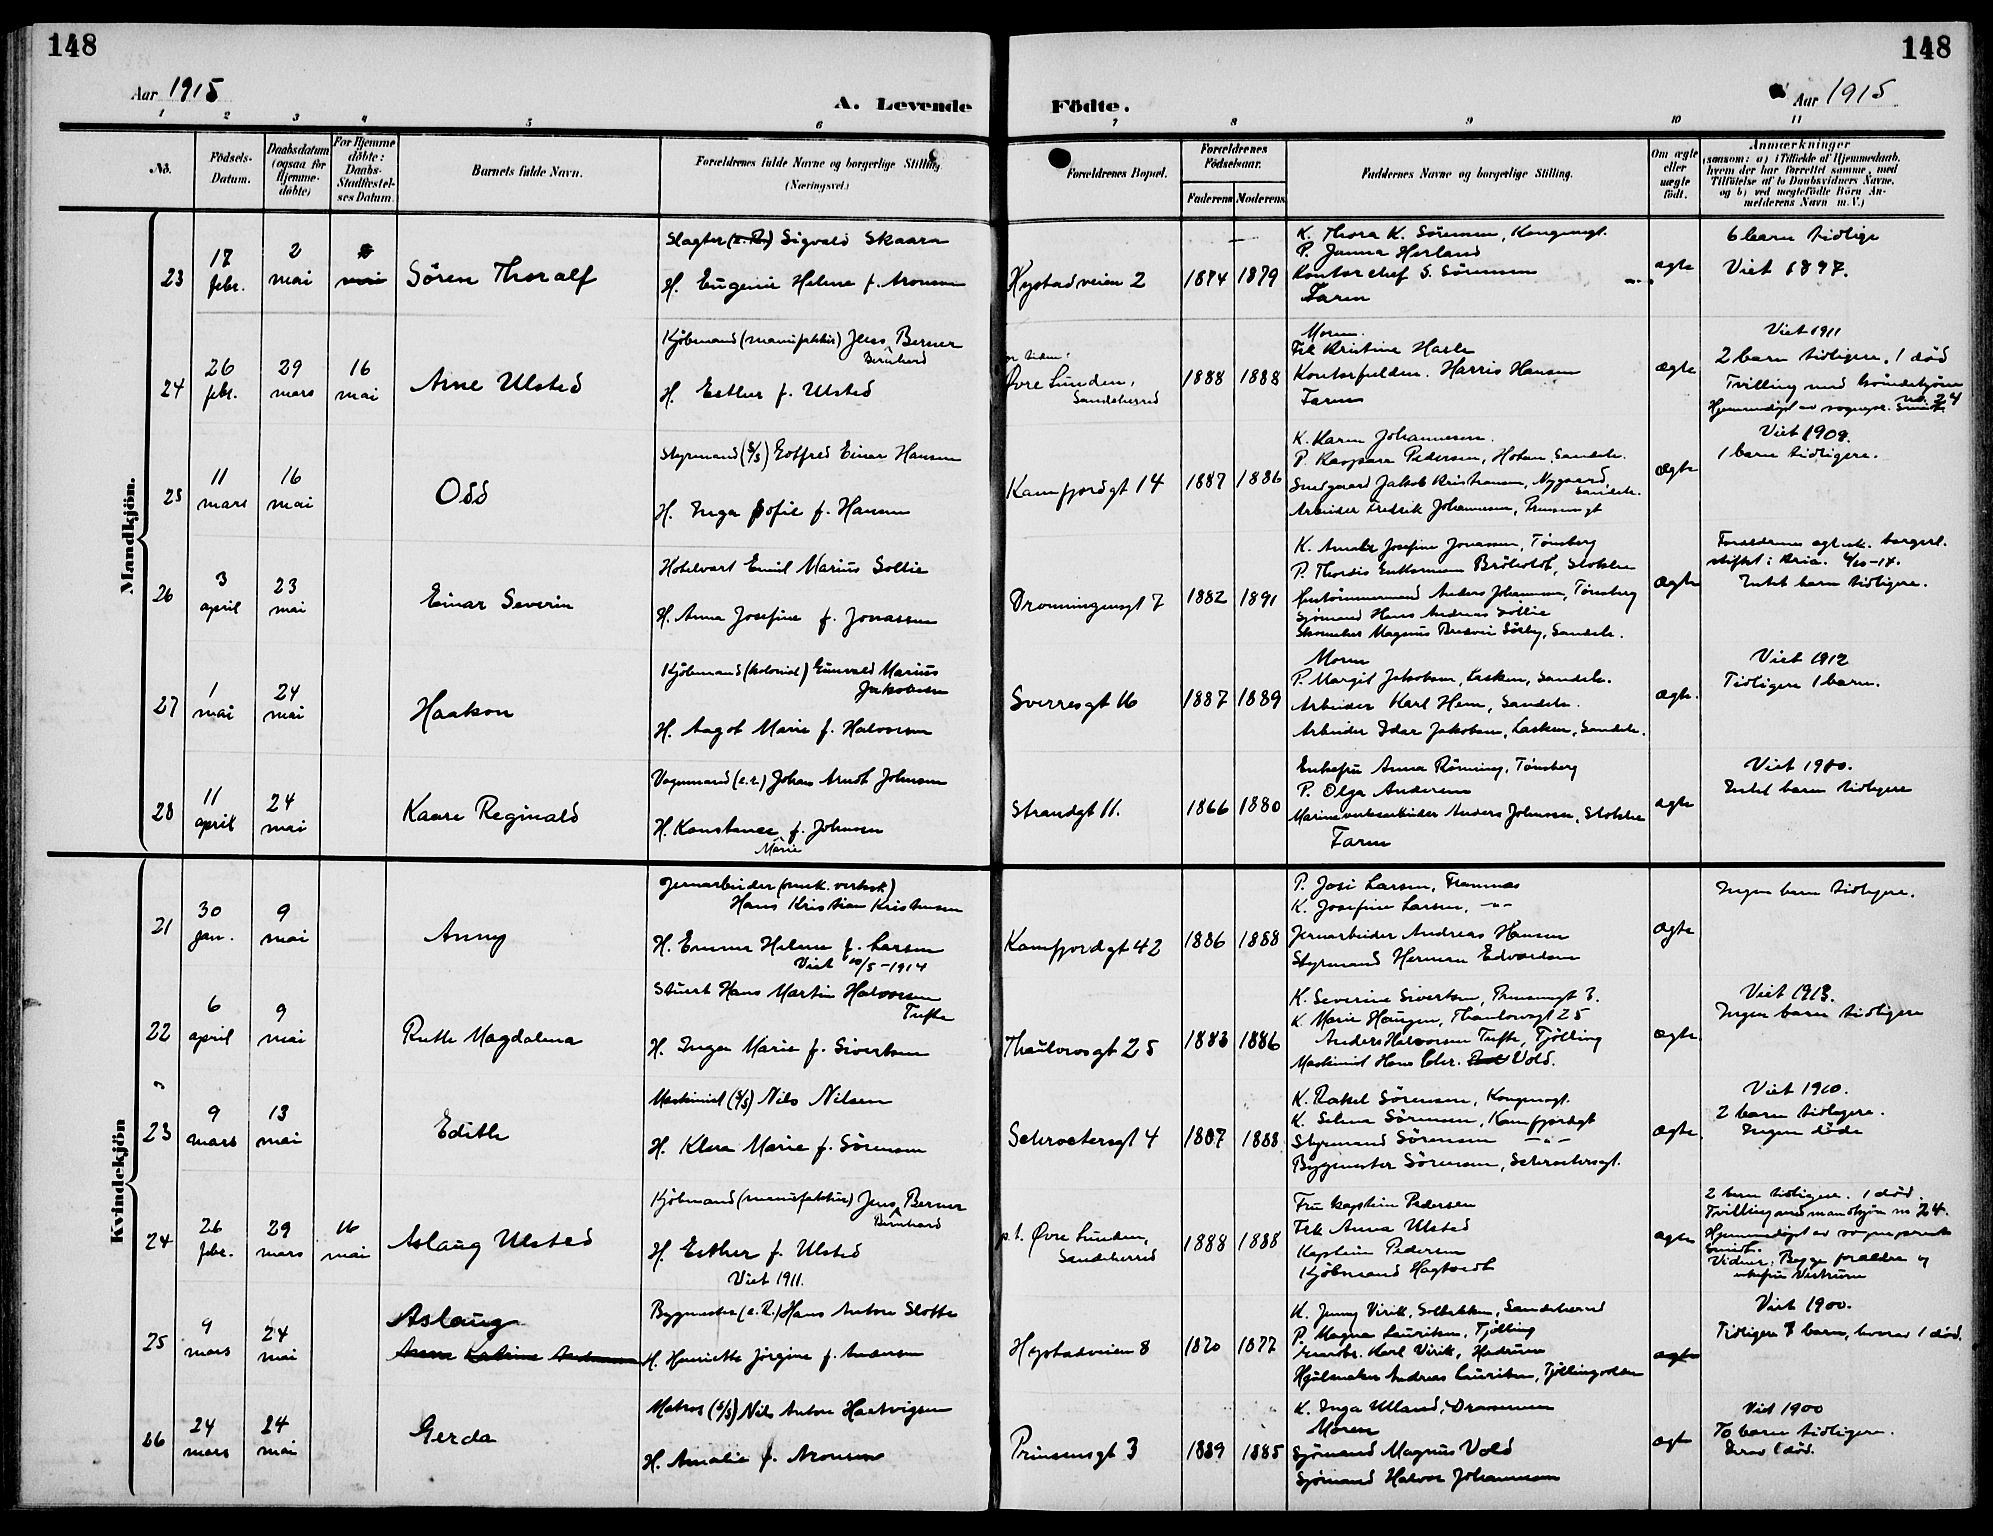 148
148
Aar 1915
A. Levende Födte.
Aar 1915
1 2 3 4 5 6 7 8 9 10 11
No.
Födsels-Datum.
Daabsdatum (ogsaa for Hjemme-döbte)
For Hjemme döbte: Daabs-Stadfæstelses Datum.
Barnets fulde Navn.
Forældrenes fulde Navne og borgerlige Stilling.
(Næringsvei.)
Forældrenes Bopæl.
Forældrenes Födselsaar.
Faderens Moderens
Faddernes Navne og borgerlige Stilling.
Om ægte eller uægte født.
Anmærkninger
(saasom: a) i Tilfælde af Hjemmedaab,
hvem der har forrettet samme, med
Tilföielse af to Daabsvidners Navne,
og b) ved uægtefödte Börn An-
melderens Navn m. V.)
Mandkjön.
23
18 febr.
2 mai
mai
Sören Thoralf
Slagter Sigvald Skaara
H. Eugenie Helene f. Aronsen
Hystadveien 2
1874 1879
K. Thora K. Sörensen, Kongensgt.
P. Janna Herland
Kontorchef S. Sörensen
Faren
ægte
6 barn tidlige
Viet 1897.
24
26 febr.
29 mars
16 mai
Arne Ulsted
Kjöbmand (manufaktur) Jens Berner
Bernhard
H. Esther f. Ulsted
Øvre Lunden,
Sandeherred
1888 1888
Moren.
Frk Kristine Hasle
Kontorfuldm. Harris Hansen
Faren
ægte
Viet 1911
2 barn tidligere, 1 död
Tvilling med kvindekjön
no. 24
Hjemmedöpt av sognepr. Smidt.
25
11 mars
16 mai
Odd
Styrmand (S/S) Gotfred Einar Hansen
H. Inga Sofie f. Hansen
Kamfjordgt 14
1887 1886
K. Karen Johannesen.
P. Kaspara Pedersen, Hotan, Sandeh.
Snedgaard Jakob Kristiansen, Nygaard,
Sandeh.
Arbeider Fredrik Johannesen, Prinsensgt
ægte
Viet 1909.
1 barn tidligere.
26
3 april
23 mai
Einar Severin
Hotelvært Emil Marius Sollie
H. Anna Josefine f. Jonassen
Dronningensgt 7
1882 1891
K. Amalie Josefine Jonassen, Tönsberg
P. Thordis
Stokke
Anders Johannesen, Tönsberg
Sjömand Hans Andreas Sollie
Skomaker Magnus Sörby, Sandeh.
ægte
Forældrenes egtesk. borgerl.
stiftet i Kria. 4/10-14.
Intet barn tidligere.
27
1 mai
24 mai
Haakon
Kjöbmand (kolonial) Gunvald Marius
Jakobsen
H. Aagot Marie f. Halvorsen
Sverresgt 16
1887 1889
Moren
P. Margit Jakobsen, Lasken, Sandeh.
Arbeider Karl Hem, Sandeh.
Arbeider Idar Jakobsen, Lasken, Sandeh.
ægte.
Viet 1912
Tidligere 1 barn.
28
11 april
24 mai
Kaare Reginald
Vognmand (e.r.) Johan Arndt Johnsen
H. Konstance f. Johnsen
Marie
Strandgt 11.
1866 1880
Enkefru Anna Rönning, Tönsberg
P. Olga Andersen
Marineverksarbeider Anders Johnsen, Stokke
Faren
ægte
Viet 1900.
Intet barn tidligere
Kvindekjön
21
30 jan.
9 mai
Anny
Jernarbeider (mek. verksk.)
Hans Kristian Kristensen
H. Emma Helene f. Larsen
Viet 10/5-1914
Kamfjordgt 42
1886 1888
P. Josi Larsen, Framnæs
K. Josefine Larsen, -"-
Jernarbeider Andreas Hansen
Styrmand Herman Edvardsen
ægte
Ingen barn tidligere.
22
6 april
9 mai
Ruth Magdalena
Stuert Hans Martin Halvorsen
Tufte
H. Inga Marie f. Sivertsen
Thaulowsgt 25
1883 1886
K. Severine Sivertsen, Prinsensgt 3.
K. Marie Haugen, Thaulowsgt 25
Anders Halvorsen Tufte, Tjölling
Maskinist Hans Chr. Vold.
ægte
Viet 1913.
Ingen barn tidligere
23
9 mars
13 mai
Edith
Maskinist (S/S) Nils Nilsen
H. Klara Marie f. Sörensen
Schroetersgt 4
1887 1888
K. Rakel Sörensen, Kongensgt.
K. Selma Sörensen, Kamfjordgt
Styrmand Sörensen -"-
Bygmester Sörensen, Schroetersgt.
ægte.
Viet 1910.
2 barn tidligere.
Ingen döde
24
26 febr.
29 mars
16 mai
Aslaug Ulsted
Kjöbmand (manufaktur) Jens Berner
Bernhard
H. Esther f. Ulsted
Viet 1911.
p.t. Øvre Lunden,
Sandeherred
1888 1888
Fru kaptein Pedersen
Frk Anna Ulsted
Kaptein Pedersen
Kjöbmand Hagtvedt
ægte
2 barn tidligere. 1 död.
Tvilling med mandkjön no 24.
Hjemmedöpt av sogneprest
Smidt.
Vidner: Begge forældre og
enkefru
25
9 mars
24 mai
Aslaug
Anna Katrine Andersen
Bygmester (e.R.) Hans Anton Slotte
H. Henriette Jörgine f. Andersen
Hystadveien 8
1870 1877
K. Jenny Virik, Solbakken, Sandeherred
P. Magna Lauritsen, Tjölling
Gaardbr. Karl Virik, Hedrum
Hjulmaker Andreas Lauritsen, Tjöllingvolden
ægte
Viet 1900.
Tidligere 8 barn, hvorav 1 död.
26
24 mars
24 mai
Gerda
Matros (S/S) Nils Anton Haatvigsen
H. Amalie f. Aronsen
Prinsensgt 3
1889 1885
K. Inga Ulland, Drammen
Moren
Sjömand Magnus Vold
Sjömand Halvor Johannesen
ægt
Viet 1900
To barn tidligere.
Derav 1 död.